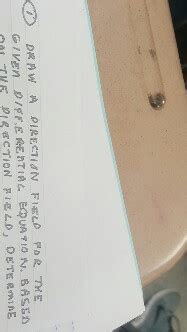 ① DRAW A DIRECTION FIELD FOR THE
GIVEN DIFFERENTIAL EQUATION. BASED
ON THE DIRECTION FIELD, DETERMINE